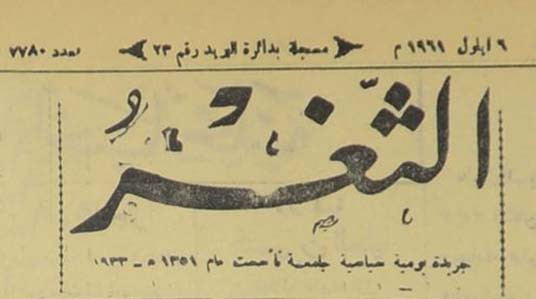 ٦ ايلول ١٩٦١ م مسجلة بدائرة البريد رقم ٢٣ العدد ٧٧٨٠
الثَّغْر
جريدة يومية سياسية جامعة تأسست عام ١٣٥١ ه - ١٩٣٣